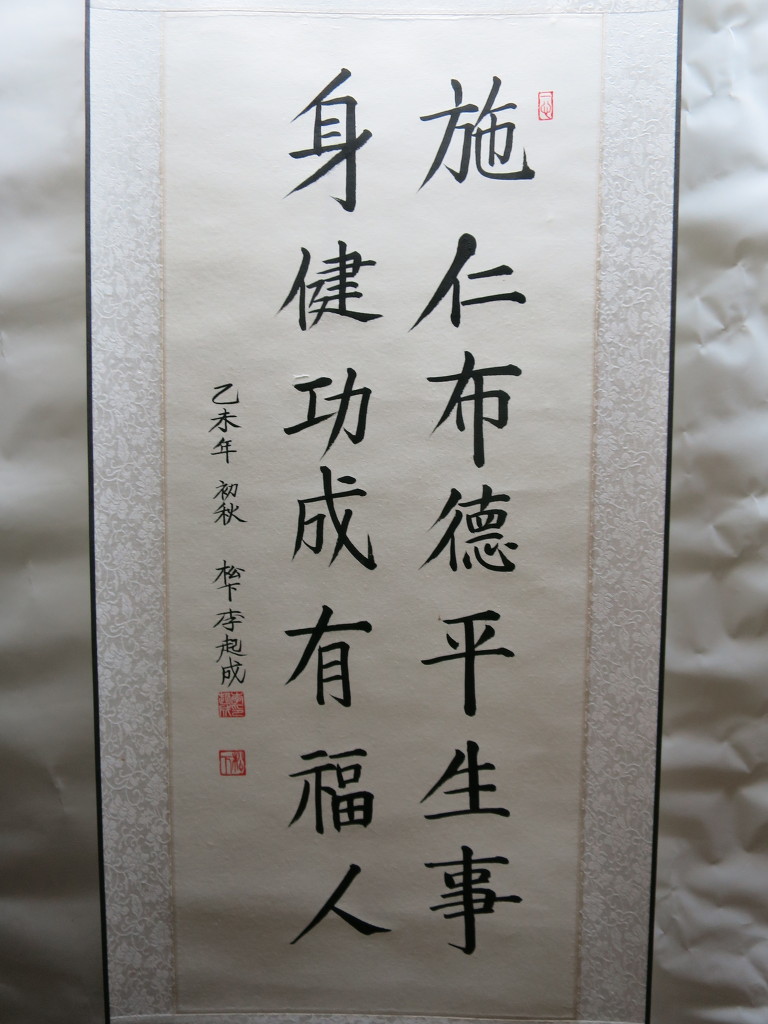 施仁布德平生事
身健功成有福人
乙未年 初秋 松下李起成